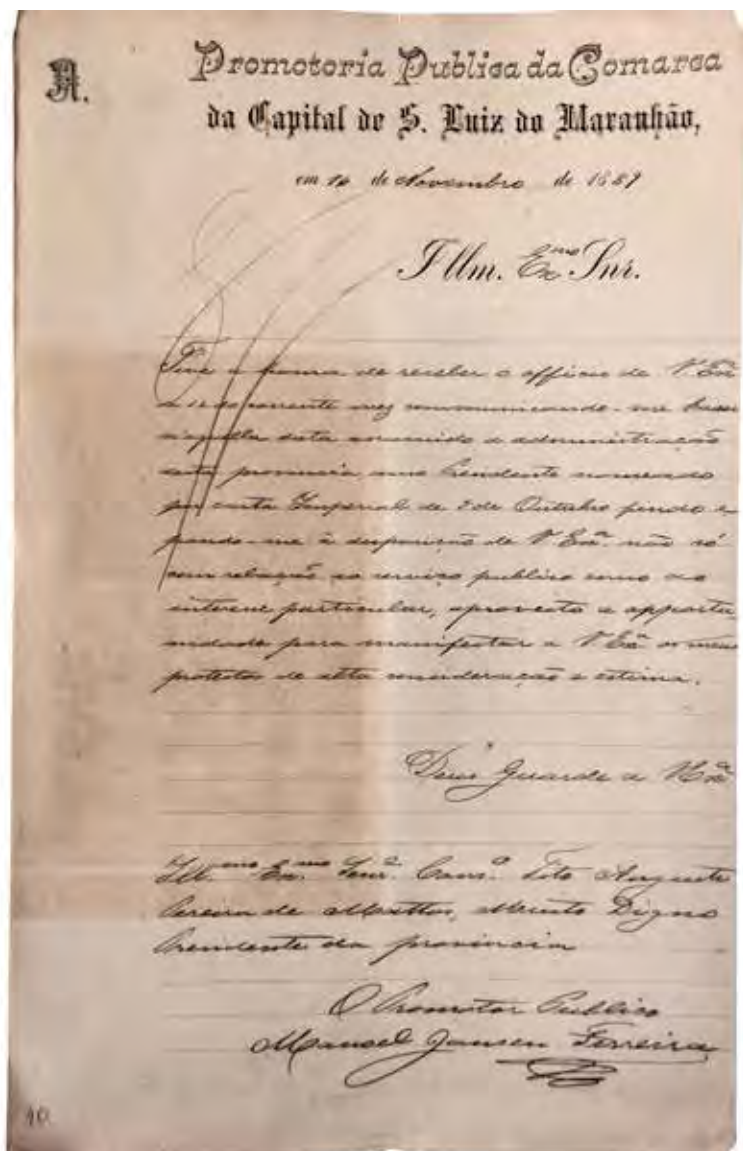 A.
Promotoria Publica da Comarca
da Capital de S. Luiz do Maranhão,
em 16 de Novembro de 1889
Illm. Exmo Snr.
Tive a honra de receber o officio de V. Exa
do corrente mez communicando-me haver
n'aquella data assumido a administração
desta provincia como Presidente nomeado
por carta Imperial de 8 de Outubro findo e
pondo-me à disposição de V. Exa. não só
com relação ao serviço publico como ao
interesse particular, aproveito a opportu
nidade para manifestar a V. Exa os meus
protestos de alta consideração e estima.
Deus Guarde a V. Exa
Illmo Exmo Senr. Consro Tito Augusto
Pereira de Mattos, Muito Digno
Presidente da provincia
O Promotor Publico
Manoel Jansen Ferreira
40